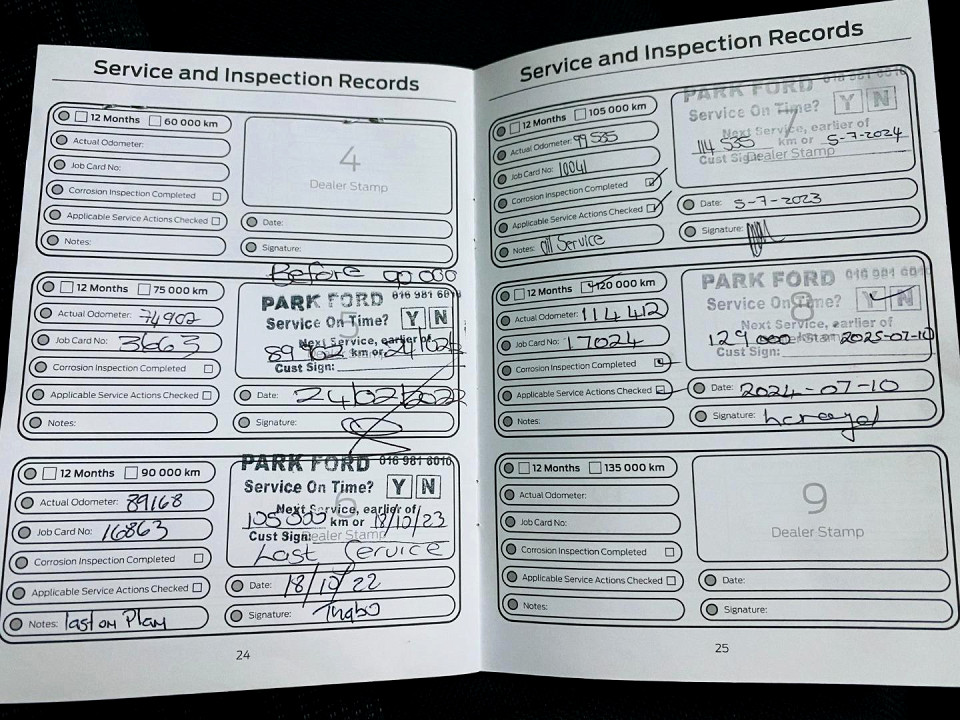 Service and Inspection Records
12 Months 60 000 km
Actual Odometer:
Job Card No:
Corrosion Inspection Completed
Applicable Service Actions Checked
Notes:
4
Dealer Stamp
Date:
Signature:
Before 90 000
12 Months 75 000 km
Actual Odometer: 74902
Job Card No: 3663
Corrosion Inspection Completed
Applicable Service Actions Checked
Notes:
5
PARK FORD 016 981 6010
Service On Time? Y N
Next Service, earlier of
89902 km or
Cust Sign:
Date: 24/02/2022
Signature:
12 Months 90 000 km
Actual Odometer: 89168
Job Card No: 16863
Corrosion Inspection Completed
Applicable Service Actions Checked
Notes: last on Plan
6
PARK FORD 016 981 6010
Service On Time? Y N
Next Service, earlier of
105 000 km or 18/10/23
Cust Sign: Dealer Stamp
Last Service
Date: 18/10/22
Signature:
24
Service and Inspection Records
12 Months 105 000 km
Actual Odometer: 99 535
Job Card No: 10041
Corrosion Inspection Completed
Applicable Service Actions Checked
Notes: oil Service
7
PARK FORD 016 981 6010
Service On Time? Y N
Next Service, earlier of
114 535 km or 5-7-2024
Cust Sign: Dealer Stamp
Date: 5-7-2023
Signature:
12 Months 120 000 km
Actual Odometer: 114 412
Job Card No: 17024
Corrosion Inspection Completed
Applicable Service Actions Checked
Notes:
8
PARK FORD 016 981 6010
Service On Time? Y N
Next Service, earlier of
129 000 km or 2025-07-10
Cust Sign:
Date: 2024-07-10
Signature:
12 Months 135 000 km
Actual Odometer:
Job Card No:
Corrosion Inspection Completed
Applicable Service Actions Checked
Notes:
9
Dealer Stamp
Date:
Signature:
25